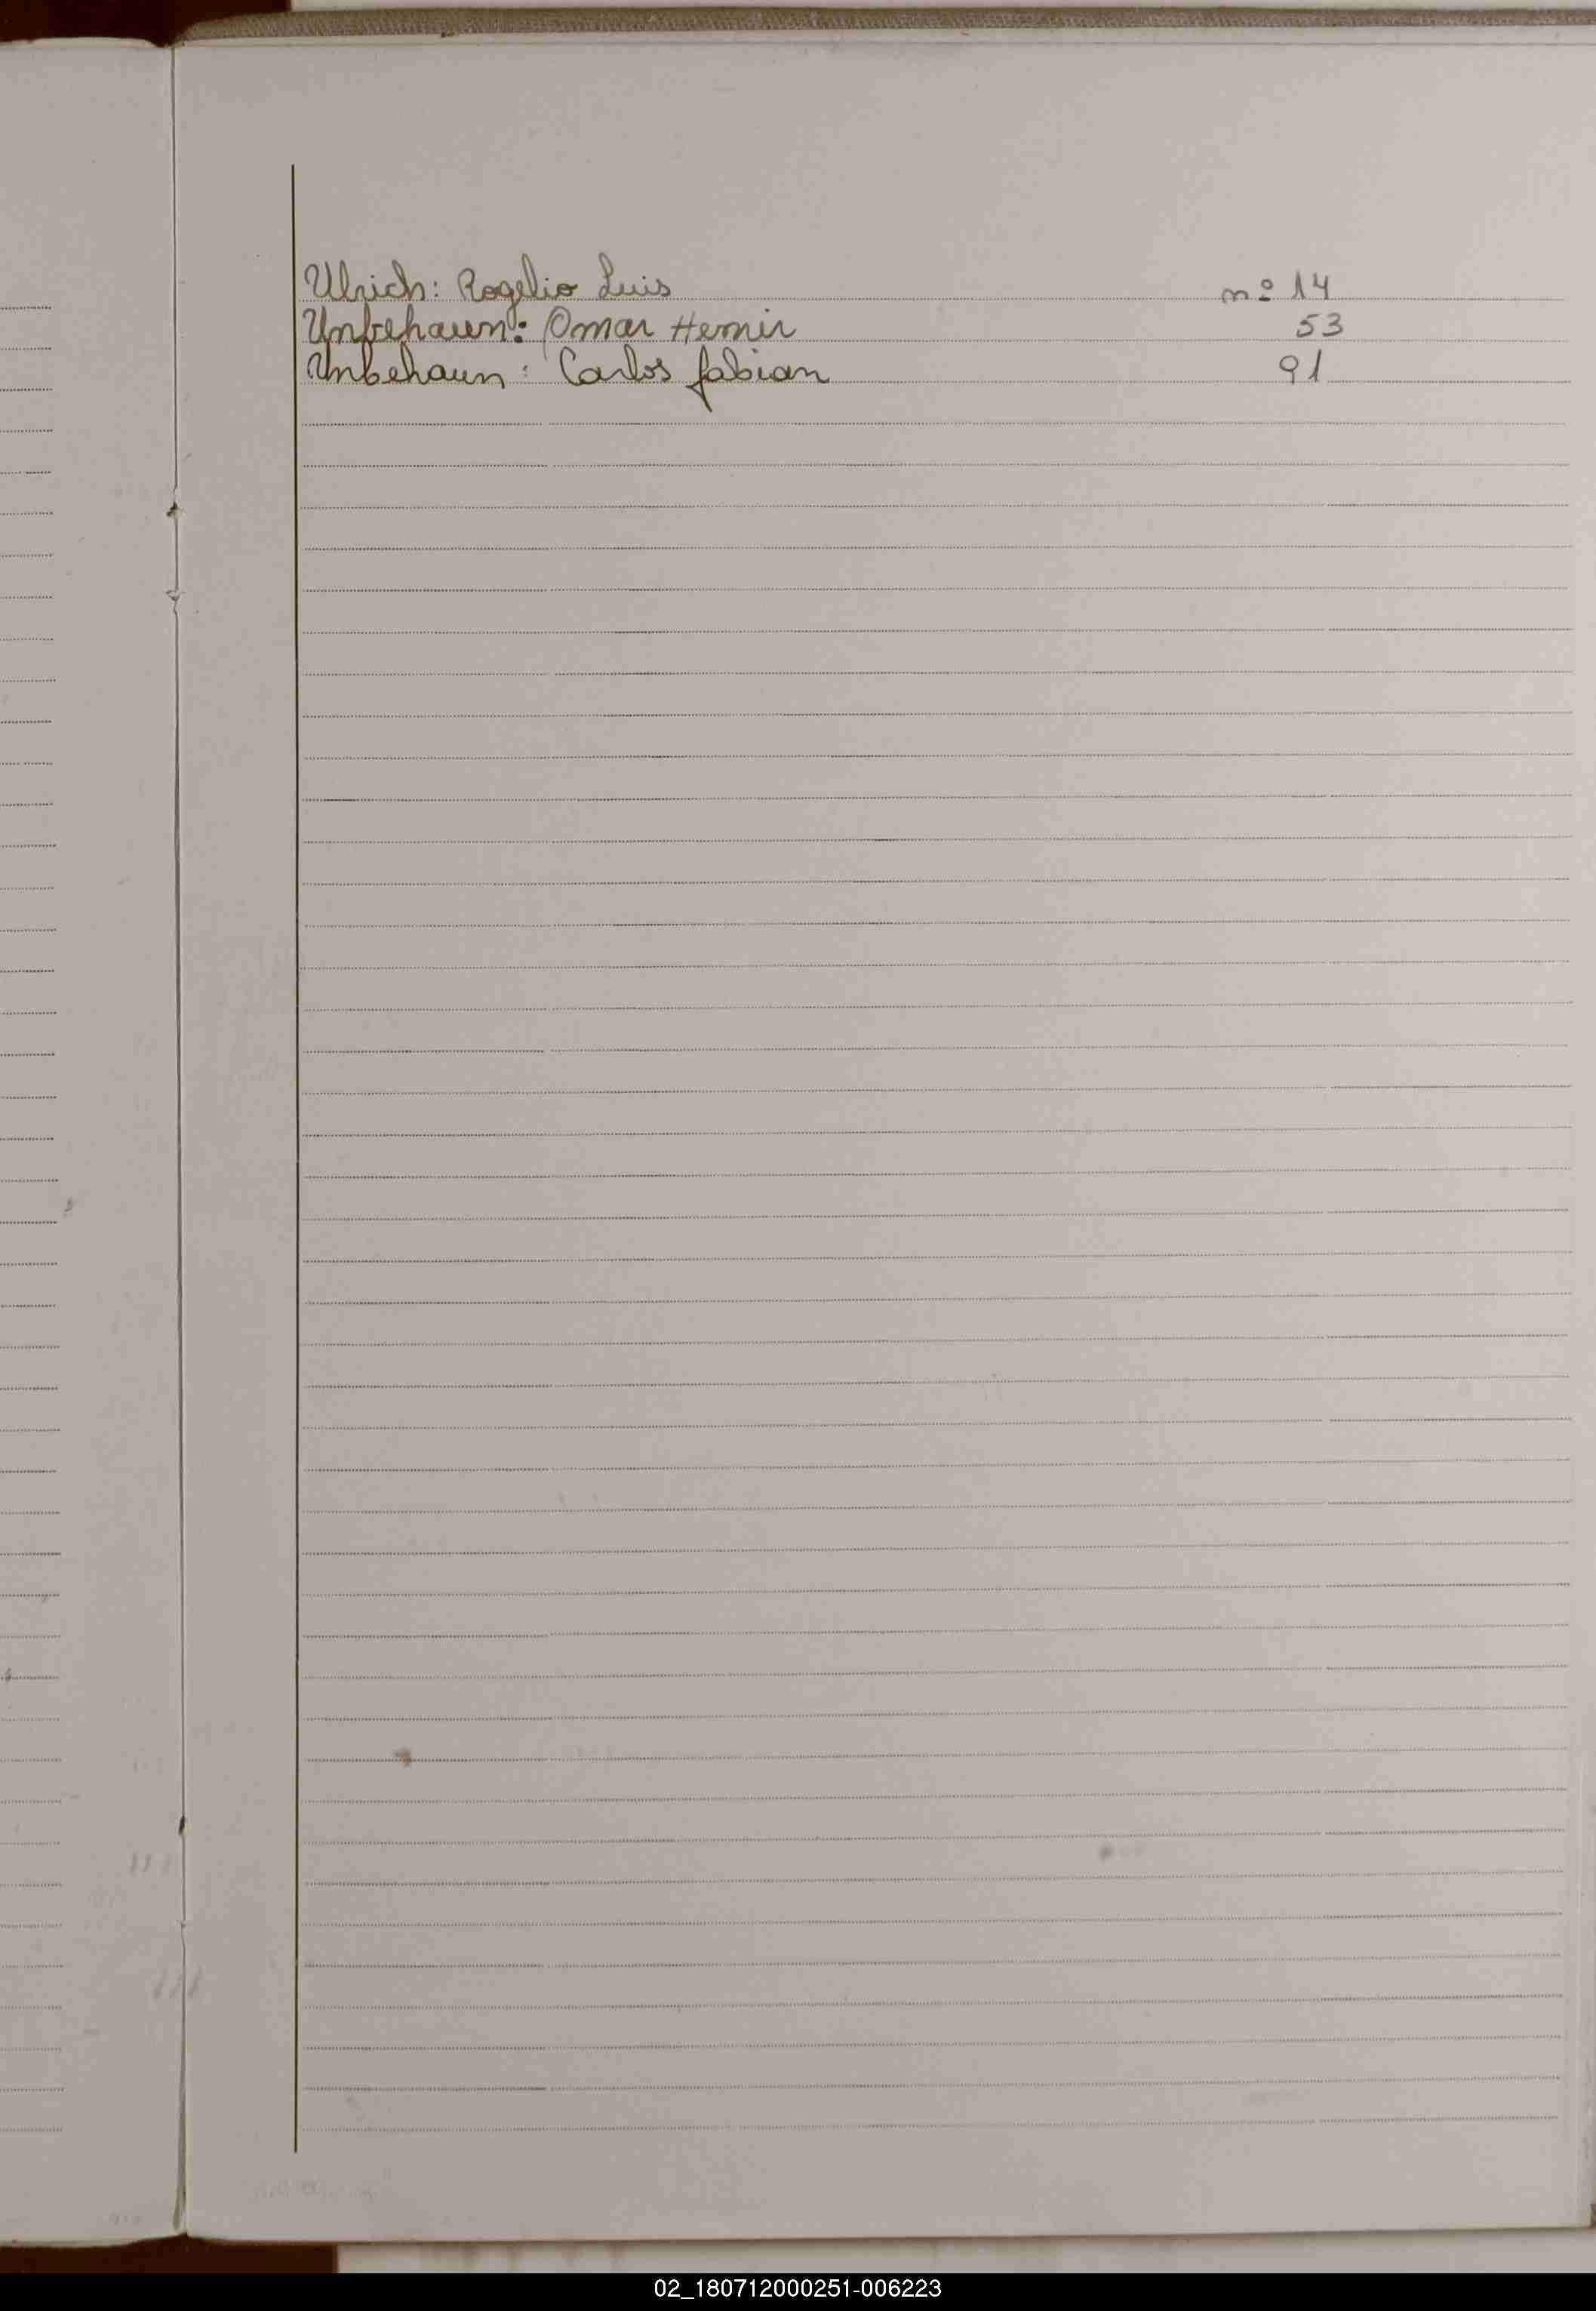 Ulrich: Rogelio Luis nº 14
Unbehaun: Omar Hemir 53
Unbehaun: Carlos fabian 91
02_180712000251-006223